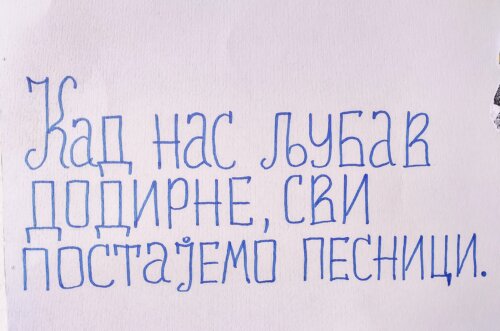 Кад нас љубав
додирне, сви
постајемо песници.